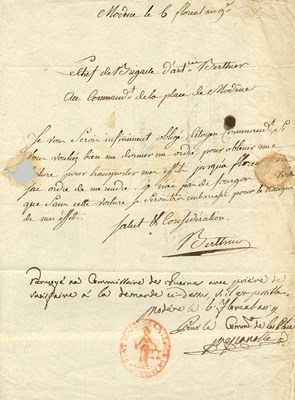 Modène le 6 floreal an 9e
Chef de Brigade d'artrie Berthier
au Commandt de la place de Modène
Je vous Serois infiniment obligé, Citoyen Commandant, Si
vous vouliez bien me donner un ordre pour obtenir une
voiture pour transporter mes effets jusqu'a florence
j'ai ordre de me rendre.
que Sans cette voiture je Serois bien embarassé pour le transport
de mes effets.
Salut & Considération.
Berthier
Renvoyé au Commissaire des Guerres avec prière de
satisfaire à la demande ci-dessus, s'il est possible
Modène le 6 floreal an 9
Pour le Commt de la Place